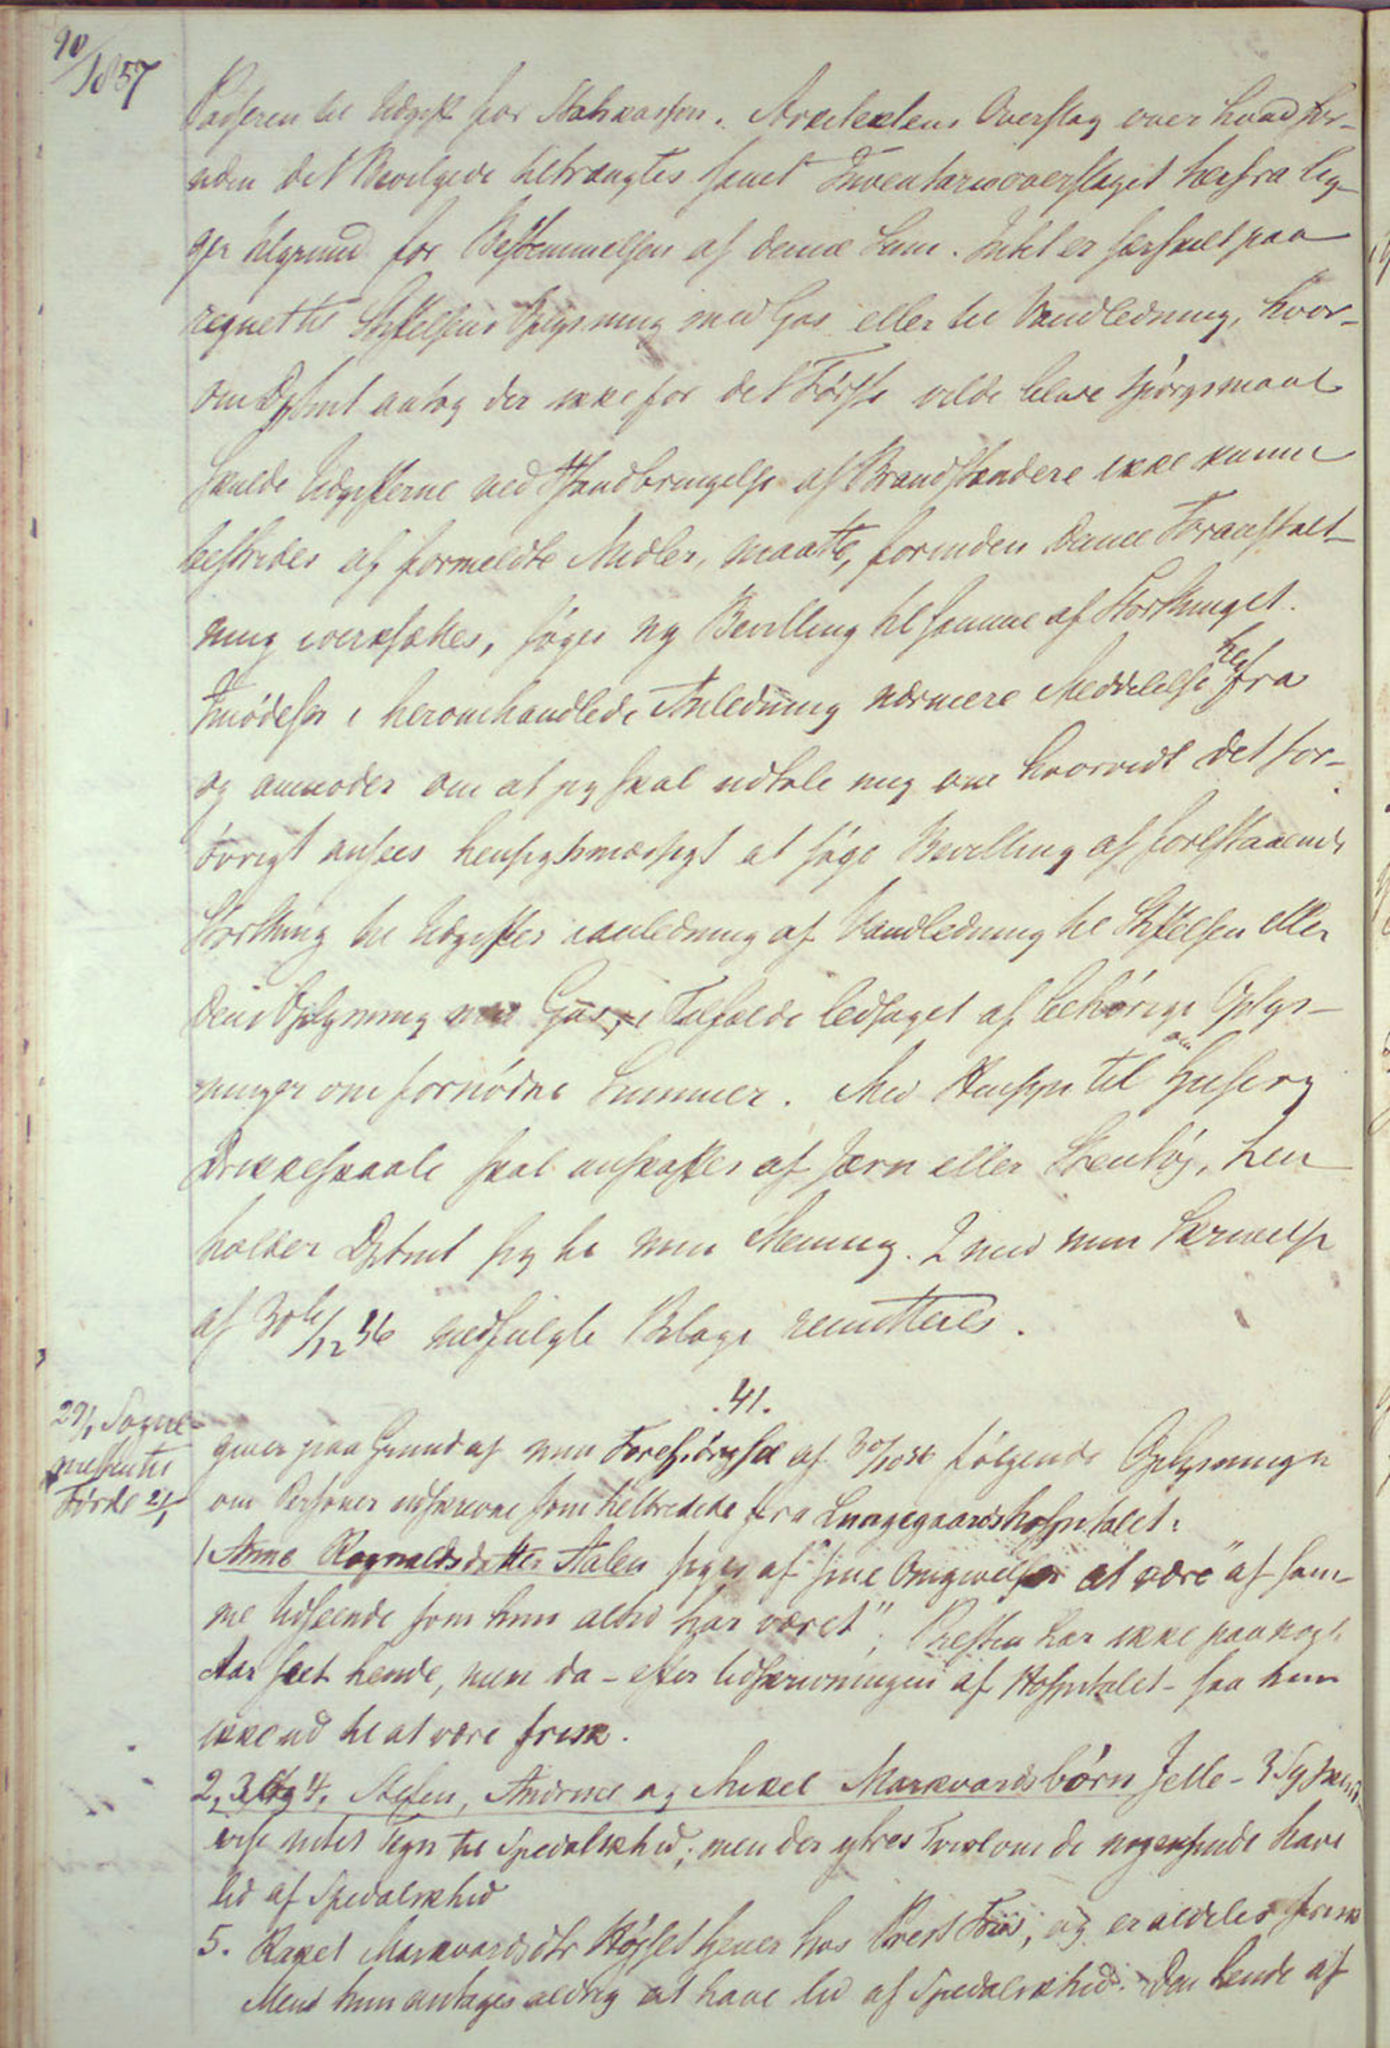 90/1857
Posteren til Udgift for Statskassen. Arkitektens Overslag over hvad for-
uden det Bevilgede tiltrængtes samt Inventarieoverslaget herfra lig-
ger tilgrund for Bestemmelsen af denne Sum. Intet er særskilt paa
regnet til Stiftelsens Oplysning med Gas eller til Vandledning, hvor-
om Dptmt antog der ikke for det Første vilde blive Spörgsmaal
skulde Udgifterne ved Istandbringelse af Brandstændere ikke kunne
bestrides af formeldte Midler, maatte, forinden denne Foranstalt-
ning iværksættes, söges ny Bevilling til samme af Storthinget.
Imödeser i heromhandlede Anledning nærmere Meddelelse herfra
og anmoder om at jeg skal udtale mig om hvorvidt det for-
övrigt ansees hensigtsmæssigt at söge Bevilling af forestaaende
Storthing til Udgifter i anledning af Vandledning til Stiftelsen eller
dens Oplysning med Gas, i Tilfælde ledsaget af behörige Oplys-
ninger om fornödne Summer. Med Hensyn til om
Drikkeskaale skal anskaffes af Jern eller Stentöj, hen
holder Dptmt sig til min Mening. 2 med min Skrivelse
af 30te/12 56 medfulgte Bilage remitteres.
.41.
29/1 Sogne-
præsten til
Förde 21/1
giver paa Grund af min Forespörgsel af 30/10 56 fölgende Oplysninger
om Personer udskrevne som helbredede fra Lungegaardshospitalet:
1 Anne Rognaldsdatter Aalen siges af sine Omgivelser at være "af sam-
me Udseende som hun altid har været"; Presten har ikke paa nogle
Aar seet hende, men da - efter Udskrivningen af Hospitalet - saa hun
ikke ud til at være frisk.
2, 3 og 4. Steffen, Andrine og Mikel Markvardsbörn Jelle - 3 Sydskend
vise intet Tegn til Spedalskhed; men der ytres Tvivl om de nogensinde have
lid af Spedalskhed
5. Rakel Markvardsdtr tjener hos Prest Friis, og er aldeles frisk
Men hun antages aldrig at have lid af Spedalskhed. Den hende af